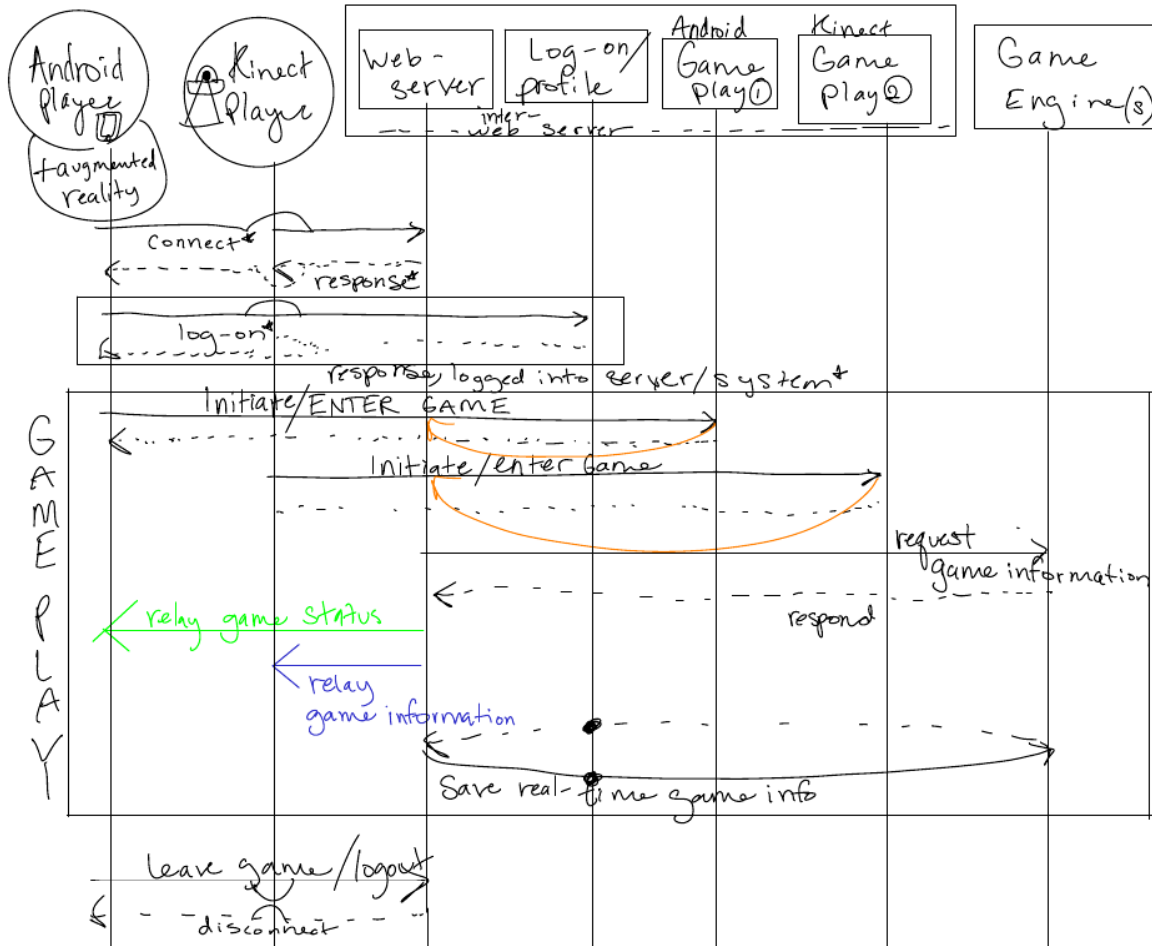 Android
player
+augmented
reality
Kinect
Player
Web-
server
Log-on/
profile
Android
Game
Play ①
Kinect
Game
play ②
inter-
web server
Game
Engine(s)
connect*
response*
log-on*
response, logged into server/system*
GAME PLAY
Initiate/ENTER GAME
Initiate/enter Game
request
game information
respond
relay game status
relay
game information
Save real-time game info
Leave game/logout
disconnect